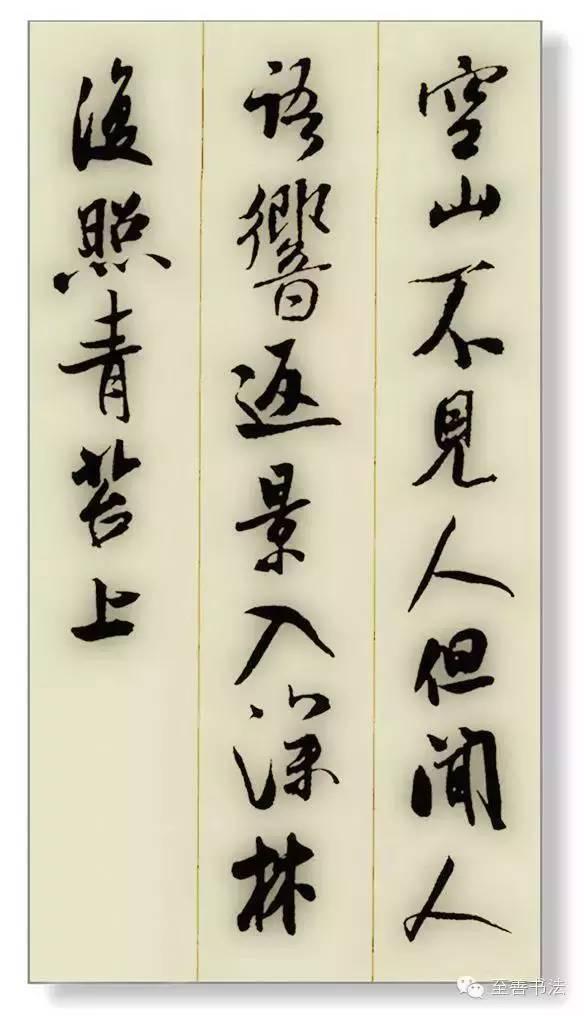 空山不見人但聞人
語響返景入深林
復照青苔上
至善书法